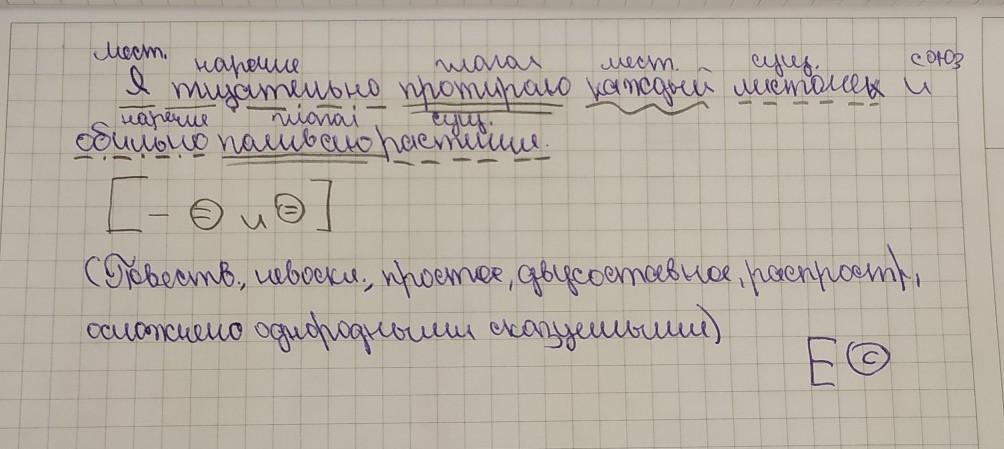 мест. наречие глагол мест. сущ. союз
Я тщательно протираю каждый листочек и
наречие глагол сущ.
обильно поливаю растение.
[– = и =]
(Повеств., невоскл., простое, двусоставное, распростр.,
осложнено однородными сказуемыми)
Е С